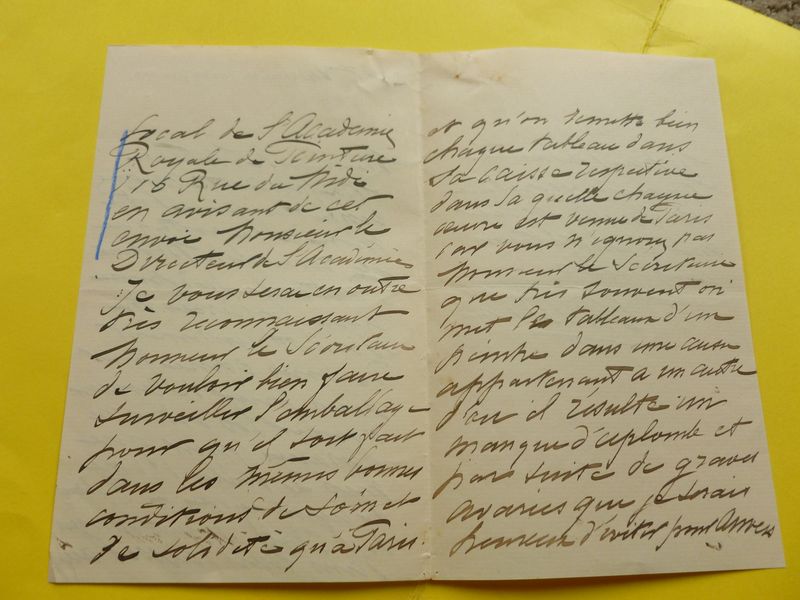 Local de l'Académie
Royale de Peinture
116 Rue du Midi
en avisant de cet
envoi Monsieur le
Directeur de l'Académie
Je vous serai en outre
très reconnaissant
Monsieur le Secrétaire
de vouloir bien faire
surveiller l'emballage
pour qu'il soit fait
dans les mêmes bonnes
conditions de soin et
de solidité qu'à Paris
et qu'on remette bien
chaque tableau dans
sa caisse respective
dans laquelle chaque
œuvre est venue de Paris
car vous n'ignorez pas
Monsieur le Secrétaire
que très souvent on
met les tableaux d'un
peintre dans une caisse
appartenant à un autre
d'où il résulte un
manque d'aplomb et
par suite de graves
avaries que je serais
heureux d'éviter pour Anvers